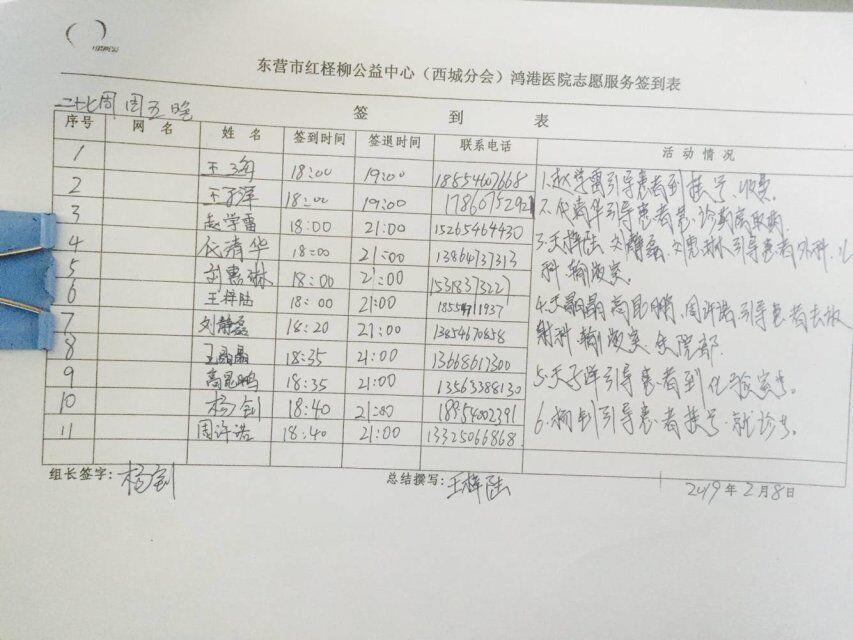 东营市红柽柳公益中心（西城分会）鸿港医院志愿服务签到表
二十七周 周五晚
签 到 表
序号 网 名 姓 名 签到时间 签退时间 联系电话 活 动 情 况
1 18:00 19:00 18554607668
2 王子洋 18:00 19:00
3 赵学雷 18:00 21:00 15265464430
4 代清华 18:00 21:00 13864737313
5 刘惠琳 18:00 21:00 15318373227
6 王梓陆 18:00 21:00
7 刘静磊 18:20 21:00 13854670858
8 王晶晶 18:35 21:00 13668617300
9 高昆鹏 18:35 21:00 13563388130
10 杨钊 18:40 21:00 18954002391
11 周许诺 18:40 21:00 13325066868
1.赵学雷引导患者到挂号、收费。
2.代清华引导患者
3.王梓陆、刘静磊、刘惠琳引导患者外科、儿
科、输液室
4.王晶晶、高昆鹏、周许诺引导患者去放
射科、输液室、住院部.
5.王子洋引导患者到化验室等。
6.杨钊引导患者挂号、就诊等。
组长签字：杨钊 总结撰写：王梓陆 2019年2月8日